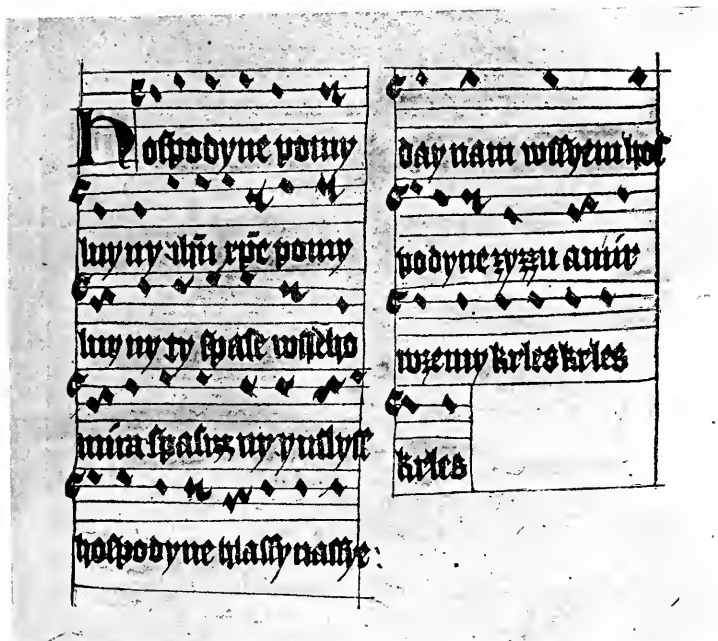 Hospodyne pomy
luy ny ihu xpe pomy
luy ny ty spase wsseho
mira spasyz ny yuslyss
hospodyne hlassy nassye :
day nam wssyem hos
podyne zyzzu a mir
wzemy krles krles
krles